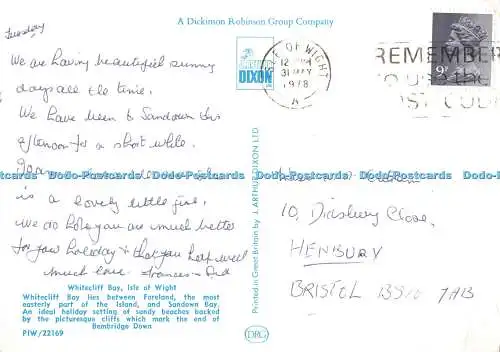 A Dickinson Robinson Group Company
Tuesday
We are having beautiful sunny
days all the time.
We have been to Sandown this
afternoon for a short while.
is a lovely little girl.
We do hope you are much better
for your holiday & that you keep well
Much love Frances &
ARTHUR
DIXON
ISLE OF WIGHT
12
31 MAY
1978
REMEMBER
9P
10, Dinsbury Close,
HENBURY
BRISTOL BS10 7AB
Dodo-Postcards Dodo-Postcards Dodo-Postcards Dodo-Postcards Dodo-Postcards
Printed in Great Britain by J. ARTHUR DIXON LTD
Whitecliff Bay, Isle of Wight
Whitecliff Bay lies between Foreland, the most
easterly part of the Island, and Sandown Bay.
An ideal holiday setting of sandy beaches backed
by the picturesque cliffs which mark the end of
Bembridge Down
PIW/22169
DRG